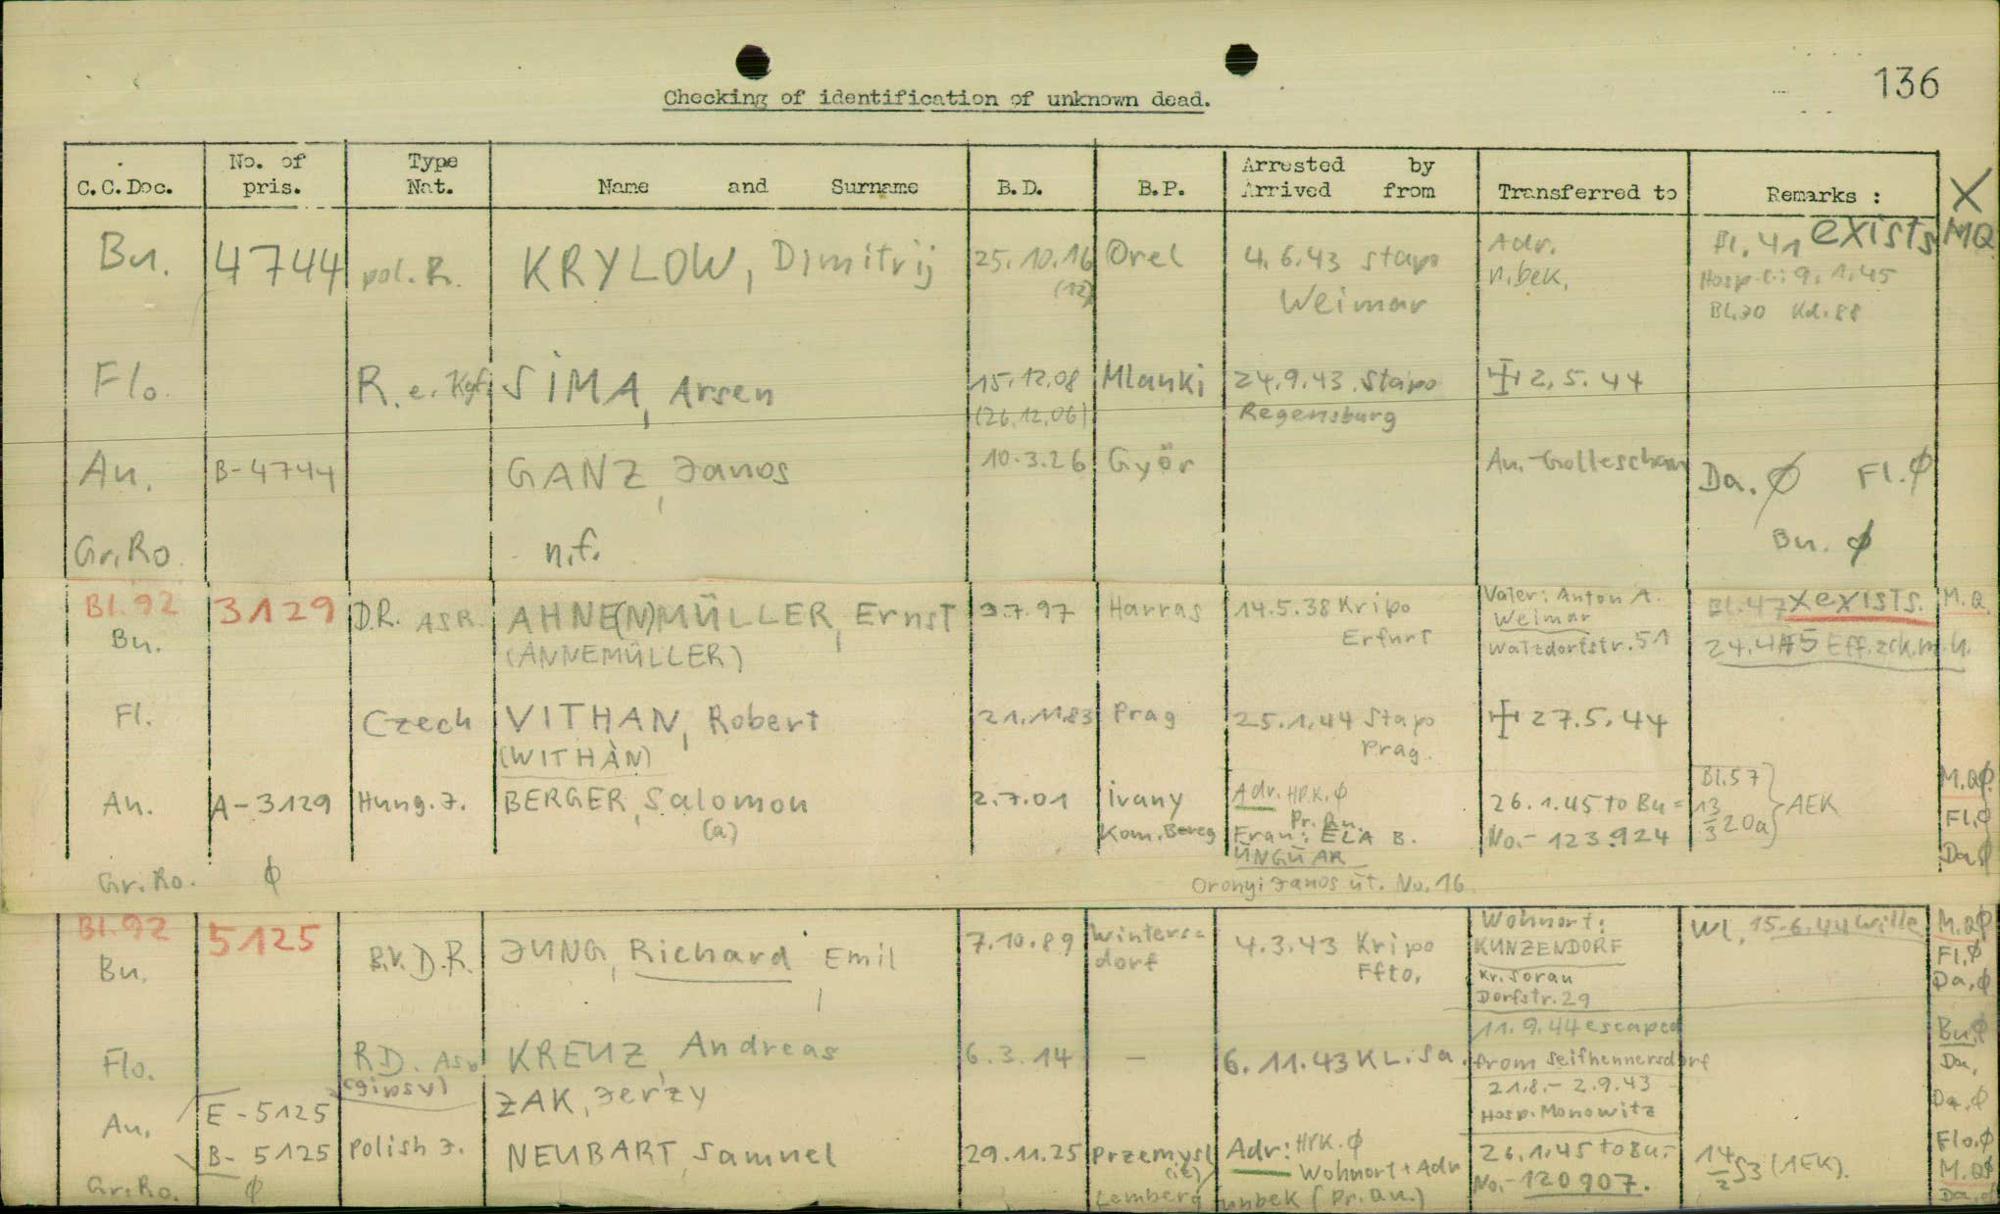 136
Checking of identification of unknown dead.
C.C.Doc. No. of pris. Type Nat. Name and Surname B.D. B.P. Arrested by Arrived from Transferred to Remarks : X
Bu. 4744 pol. R. KRYLOW, Dimitrij 25.10.16 (12) Orel 4.6.43 Stapo Weimar Adr. n.bek. Bl. 41 exists MQ
Hosp. 9.1.45
Bl.70 Kd.88
Flo. R. e. Kgf. SIMA, Arsen 15.12.08 (26.12.06) Mlanki 24.9.43 Stapo Regensburg ☩ 2.5.44
Au. B-4744 GANZ, Janos 10.3.26 Györ Au.-Golleschau Da. Ø Fl. Ø
Bu. Ø
Gr.Ro n.f.
Bl.92 3129
Bu. D.R. ASR AHNE(N)MÜLLER, Ernst 3.7.97 Harras 14.5.38 Kripo Erfurt Vater: Anton A. Bl.47 X exists. M.Q.
(ANNEMÜLLER) Weimar
Walzdorfstr. 51 24.4.45 Eff.
Fl. Czech VITHAN, Robert 21.11.83 Prag 25.1.44 Stapo Prag. ☩ 27.5.44
(WITHÀN)
An. A-3129 Hung. J. BERGER, Salomon 2.7.01 Ivany Adr. HPK. Ø 26.1.45 to Bu= Bl.57 AEK M.QØ.
(a) Kom. Bereg Pr. Au. No.- 123.924 13/3 20a Fl.Ø
Frau: ELA B. Da Ø
UNGUAR
Gr.Ro. Ø Oronyi Janos ut. No. 16
Bl.92 5125
Bu. B.V. D.R. JUNG, Richard Emil 7.10.89 Winters= dorf 4.3.43 Kripo Ffto. Wohnort: Wl. 15.6.44 Wille M.QØ
KUNZENDORF Fl.Ø
Kr. Sorau Da.Ø
Dorfstr. 29
Flo. RD. Aso KREUZ, Andreas 6.3.14 — 6.11.43 KL. Sa. 11.9.44 escaped Bu.Ø
(gipsy) from Seifhennersdorf Da.
Au. E-5125 ZAK, Jerzy 21.8.- 2.9.43 Da.Ø
Hosp. Monowitz
B-5125 Polish J. NEUBART, Samuel 29.11.25 Przemysl Adr: HPK. Ø 26.1.45 to Bu.- 14/2 53 (AEK). Flo.Ø
Lemberg Wohnort + Adr No.- 120907. M.QØ
Gr.Ro. Ø unbek (Pr. Au.) Da.Ø